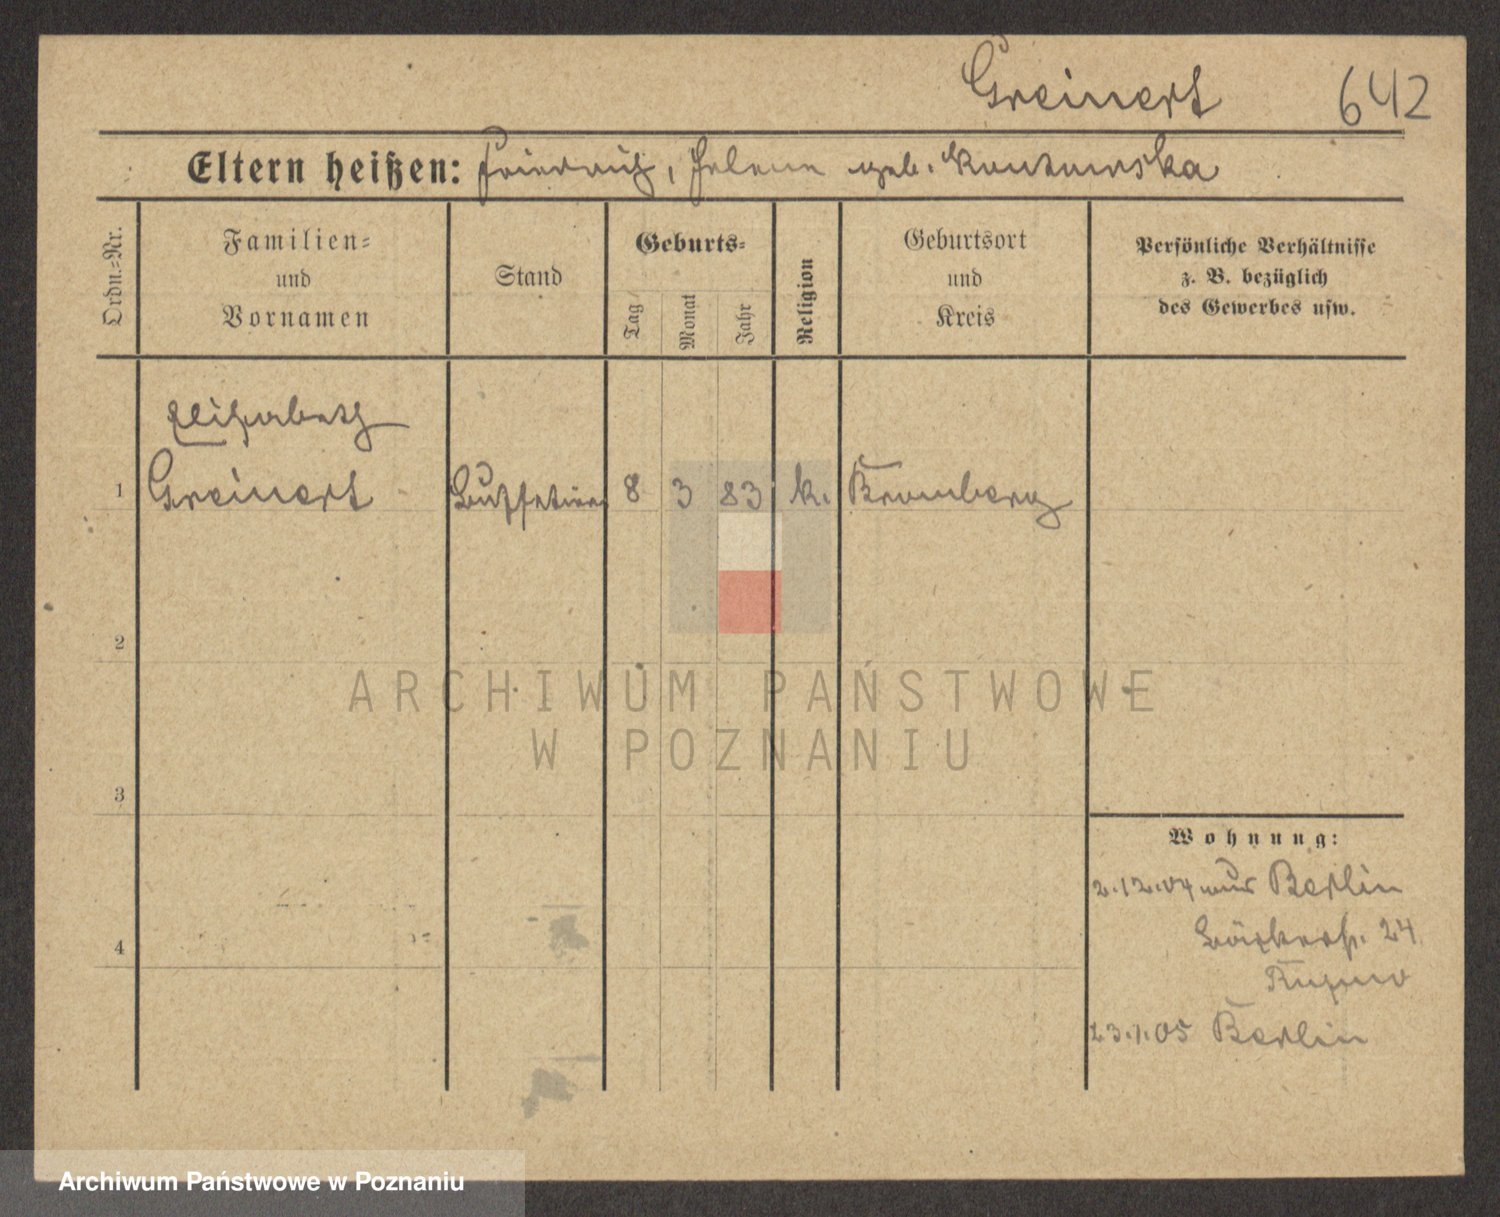 Greinert 642
Eltern heißen: Friedrich, Helene geb.
Ordn.-Nr.
Familien-
und
Vornamen
Stand
Geburts-
Tag
Monat
Jahr
Religion
Geburtsort
und
Kreis
Persönliche Verhältnisse
z. B. bezüglich
des Gewerbes usw.
Elisabeth
1 Greinert Buffetiere 8 3 83 k. Bromberg
2
3
4
Wohnung:
2.12.04 aus Berlin
24
23.1.05 Berlin
ARCHIWUM PAŃSTWOWE
W POZNANIU
Archiwum Państwowe w Poznaniu